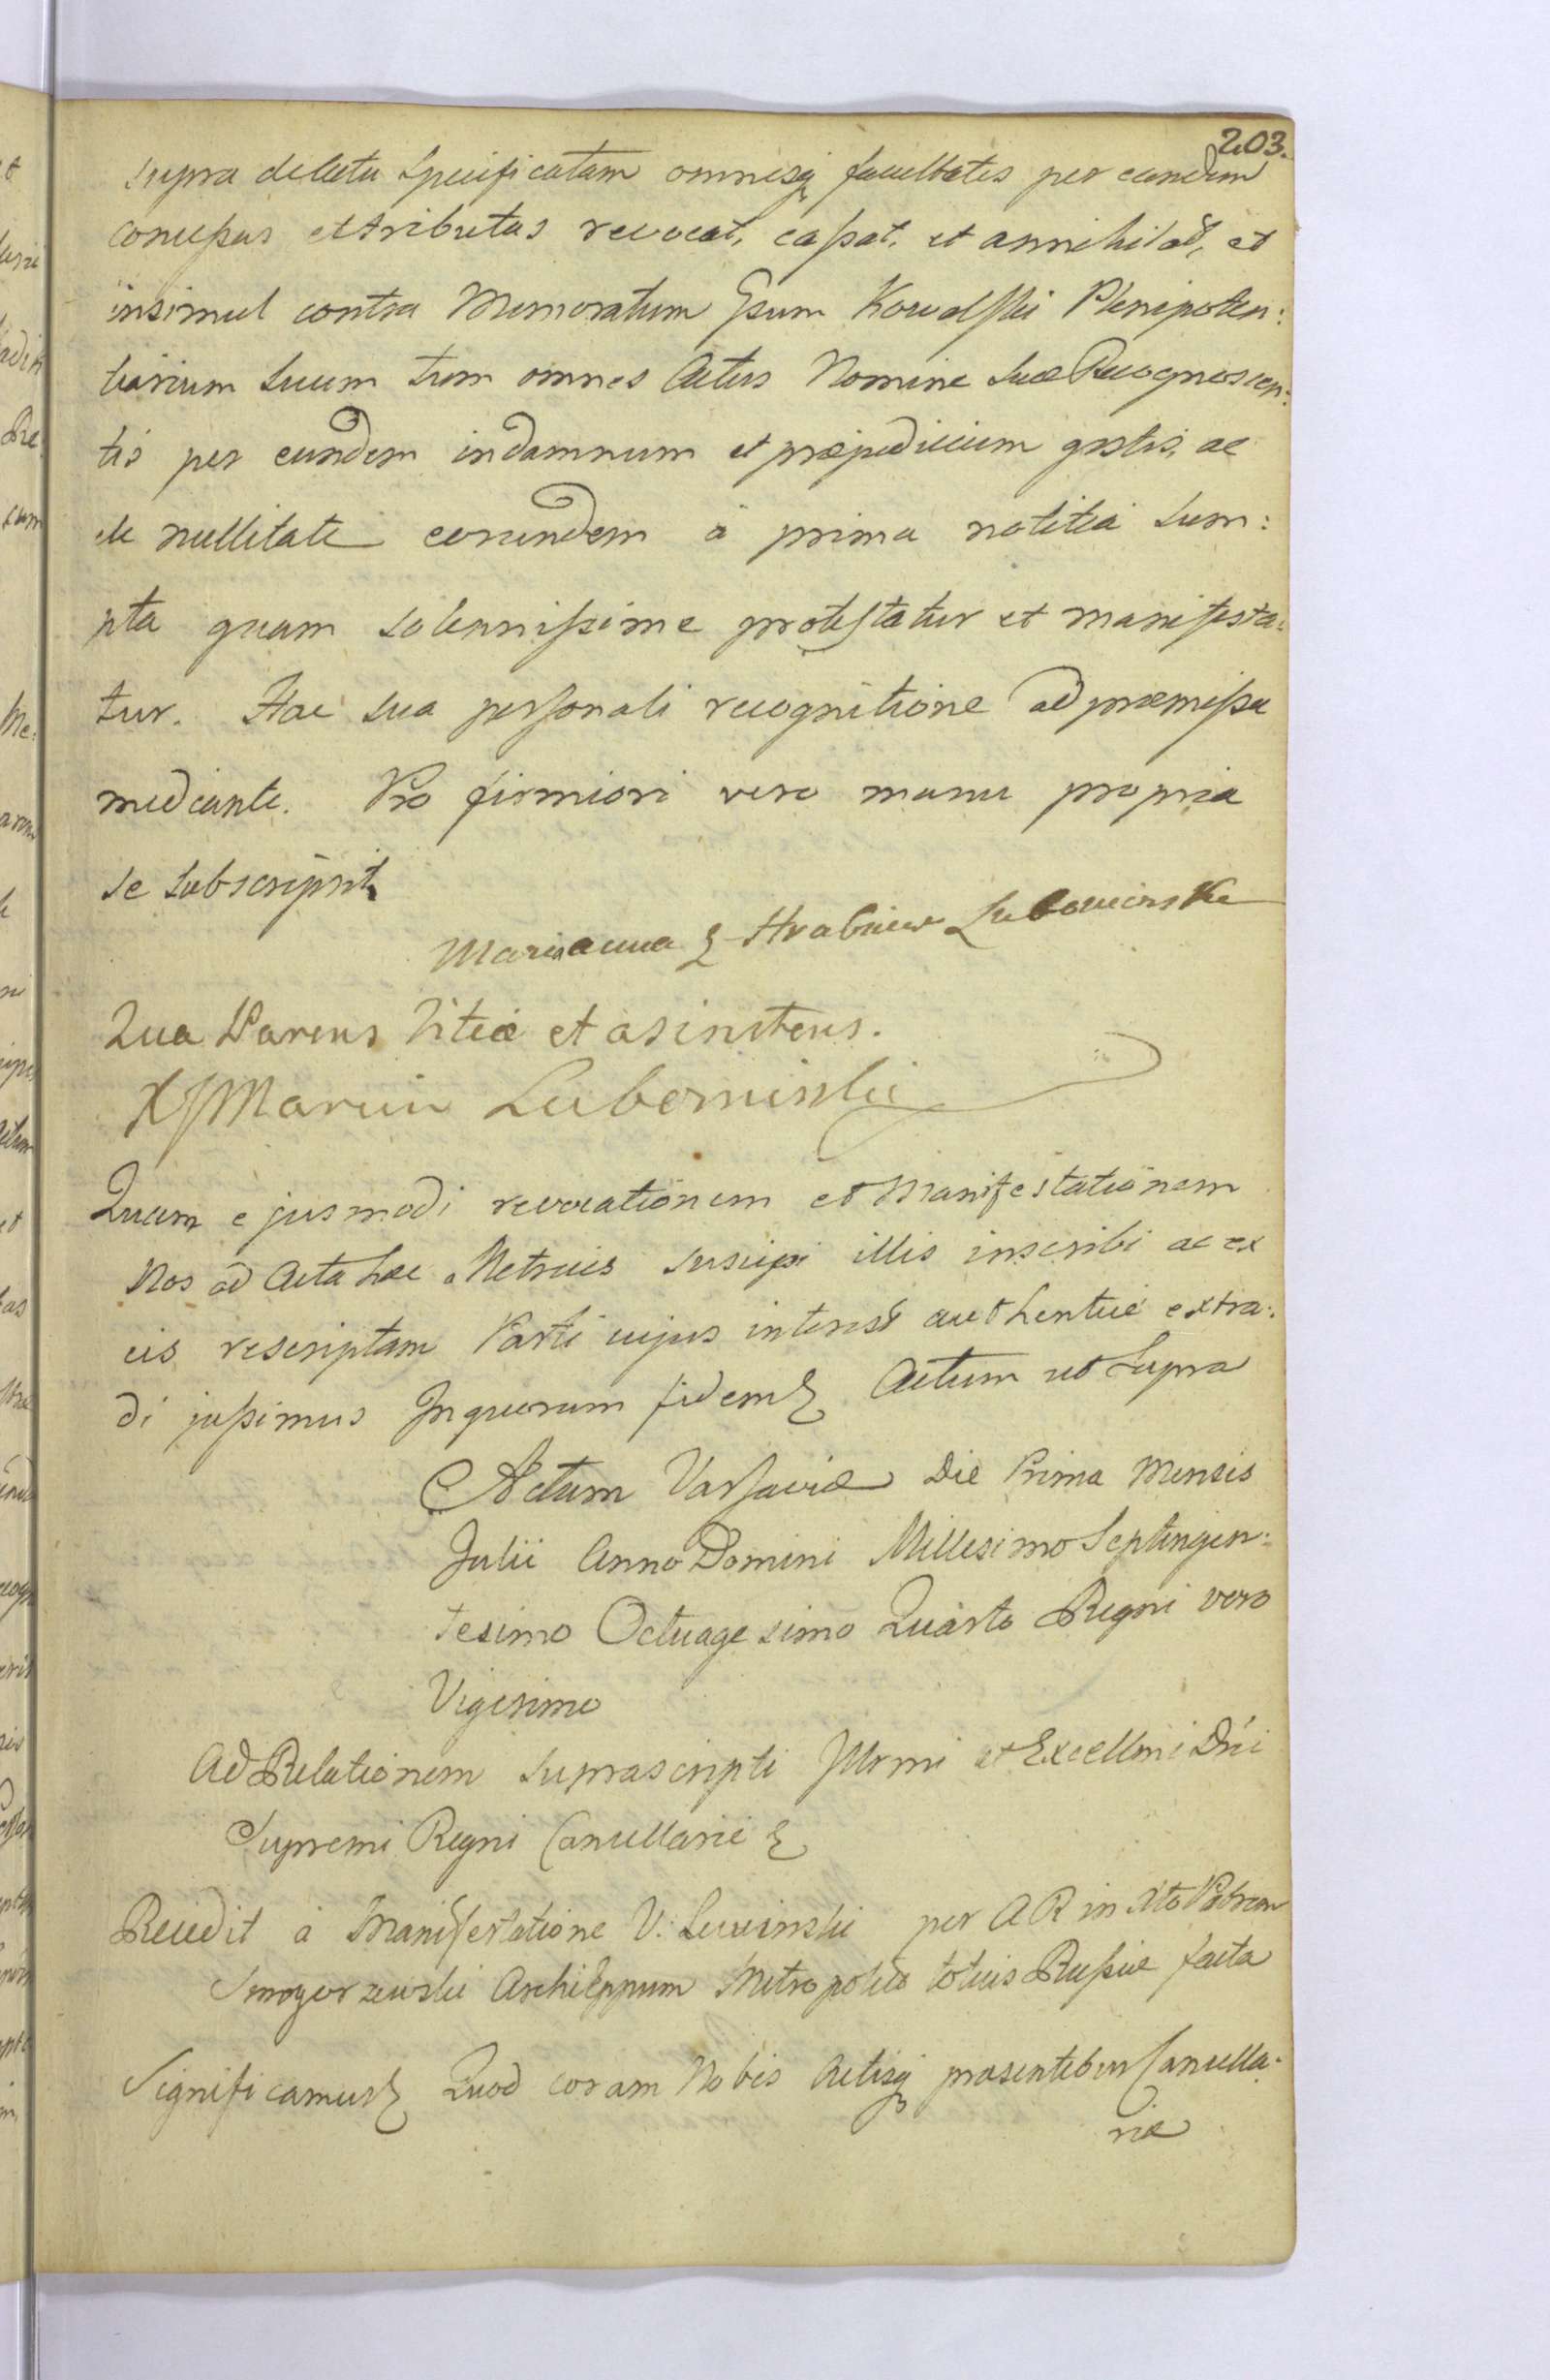 203.
supra de data Specificatam omnesq facultates per eandem
concessas et tributas revocat, cassat, et annihilat, et
insimul contra Memoratum Gsum Kowalski Plenipoten:
tiarium Suum tum omnes Actus Nomine Suæ Recognoscen:
tis per eundem in damnum et præjudicium gestis, ac
de nullitate eorundem à prima notitia Sum:
pta quam solennissime protestatur et manifesta:
tur. Hac sua personali recognitione ad præmissa
mediante. Pro firmiori vero manu propria
se subscripsit
Marianna z Hrabiow Lubomirska
Qua Parens Litiæ et assinstens.
X J Marcin Lubomirski
Quam ejusmodi revocationem et Manifestationem
Nos ad Acta hæc Metrices suscipi illis inscribi ac ex
eis rescriptam Parti cujus interest authentice extra:
di jussimus In quorum fidem Actum ut Supra
Actum Varsaviæ Die Prima Mensis
Julii Anno Domini Millesimo Septingen:
tesimo Octuagesimo Quarto Regni vero
Vigesimo
Ad Relationem suprascripti Illrmi et Excellmi Dni
Supremi Regni Cancellarii
Recedit à Manifestatione V. Lewinski per A R in Xto Patrem
Smogorzewski Archieppum Metropolita totius Russiæ facta
Significamus Quod coram Nobis Actisq præsentibus Cancella:
riæ